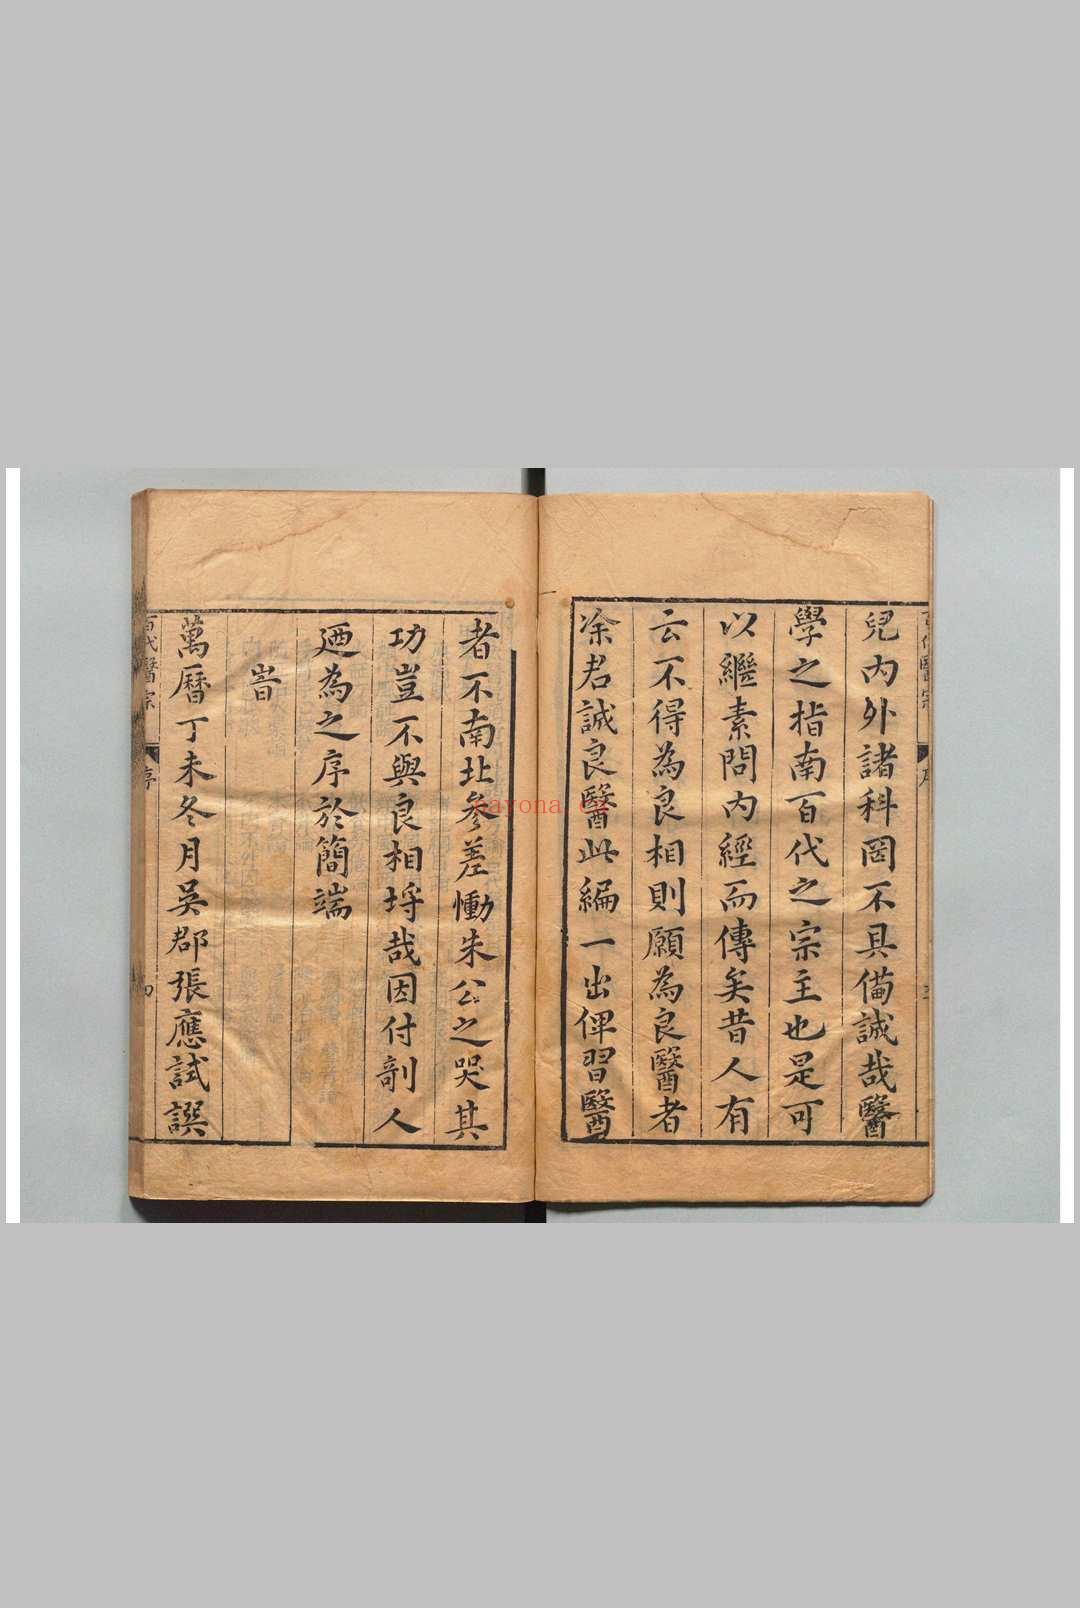 兒内外諸科罔不具備誠哉醫
學之指南百代之宗主也是可
以繼素問内經而傳矣昔人有
云不得為良相則願為良醫者
涂君誠良醫此編一出俾習醫
者不南北參差慟朱公之哭其
功豈不與良相埒哉因付剞人
廼為之序於簡端
旹
萬曆丁未冬月吳郡張應試譔
百代醫宗
序
四
nayona.cn